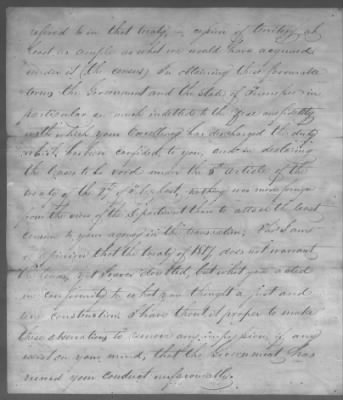 referred to in that treaty, a cession of territory at
least as ample as what we would have acquired
under it (the census) In obtaining these favorable
terms the Government and the State of Tennessee in
particular are much indebted to the zeal and fidelity
with which your Excellency has discharged the duty
which has been confided to you, and in declaring
the leases to be void under the 5th article of the
treaty of the 27 of Feby last, nothing was more foreign
from the view of the Department than to attach the least
censure to your agency in the transaction; tho I am
of opinion that the treaty of 1817 does not warrant
the leases, yet I never doubted, but what you acted
in conformity to what you thought a just and
construction. I have thought it proper to make
these observations to remove any impression, if any
exist on your mind, that the Government has
viewed your conduct unfavorably.